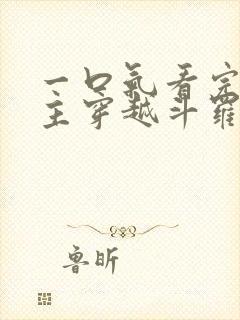 一口气看完
主穿越斗罗
鲁昕